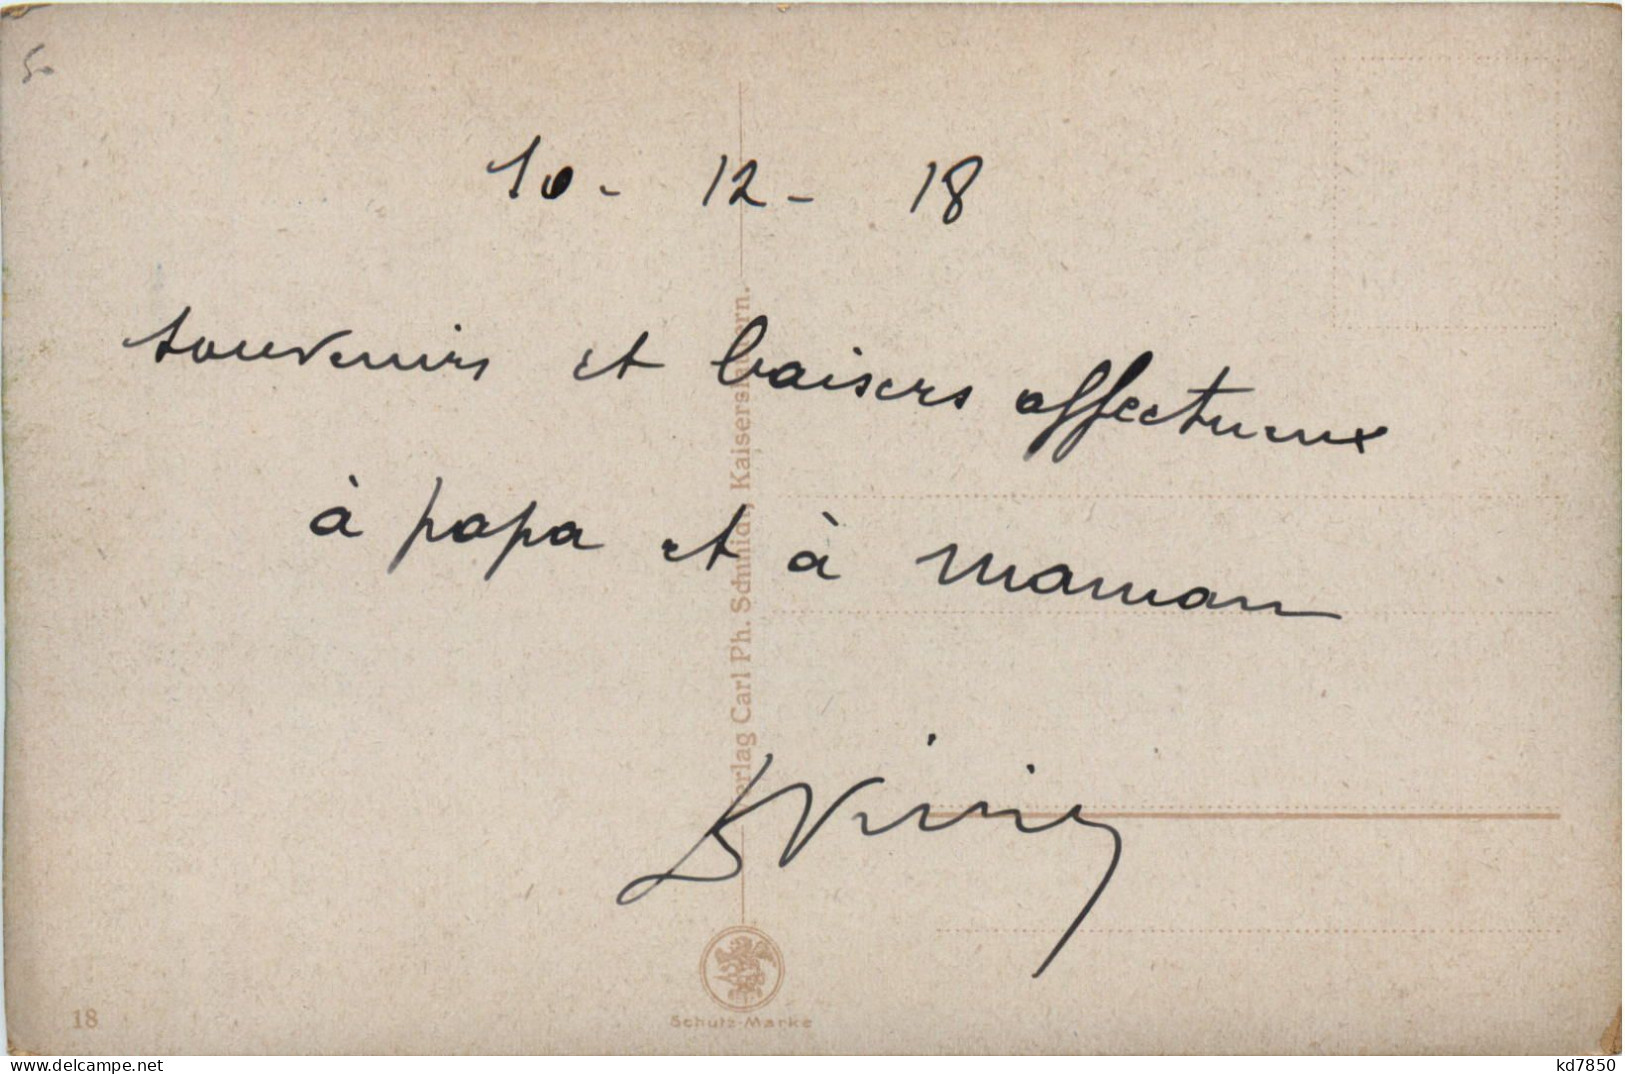 50
10 - 12 - 18
souvenirs et baisers affectueux
à papa et à maman
Verlag Carl Ph. Schmidt, Kaiserslautern.
Schutz-Marke
18
www.delcampe.net
kd7850